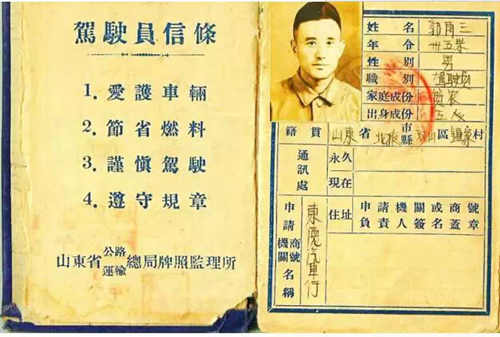 駕駛員信條
1. 愛護車輛
2. 節省燃料
3. 謹慎駕駛
4. 遵守規章
山東省公路運輸總局牌照監理所
姓名 三
年令 卅五歲
性別 男
職別 駕駛員
家庭成份
出身成份 工人
籍貫 山東省 市縣 區 村
通訊處 永久 現在
申請機關商號名稱 東 汽車行
住址
申請機關或商號
負責人簽名蓋章